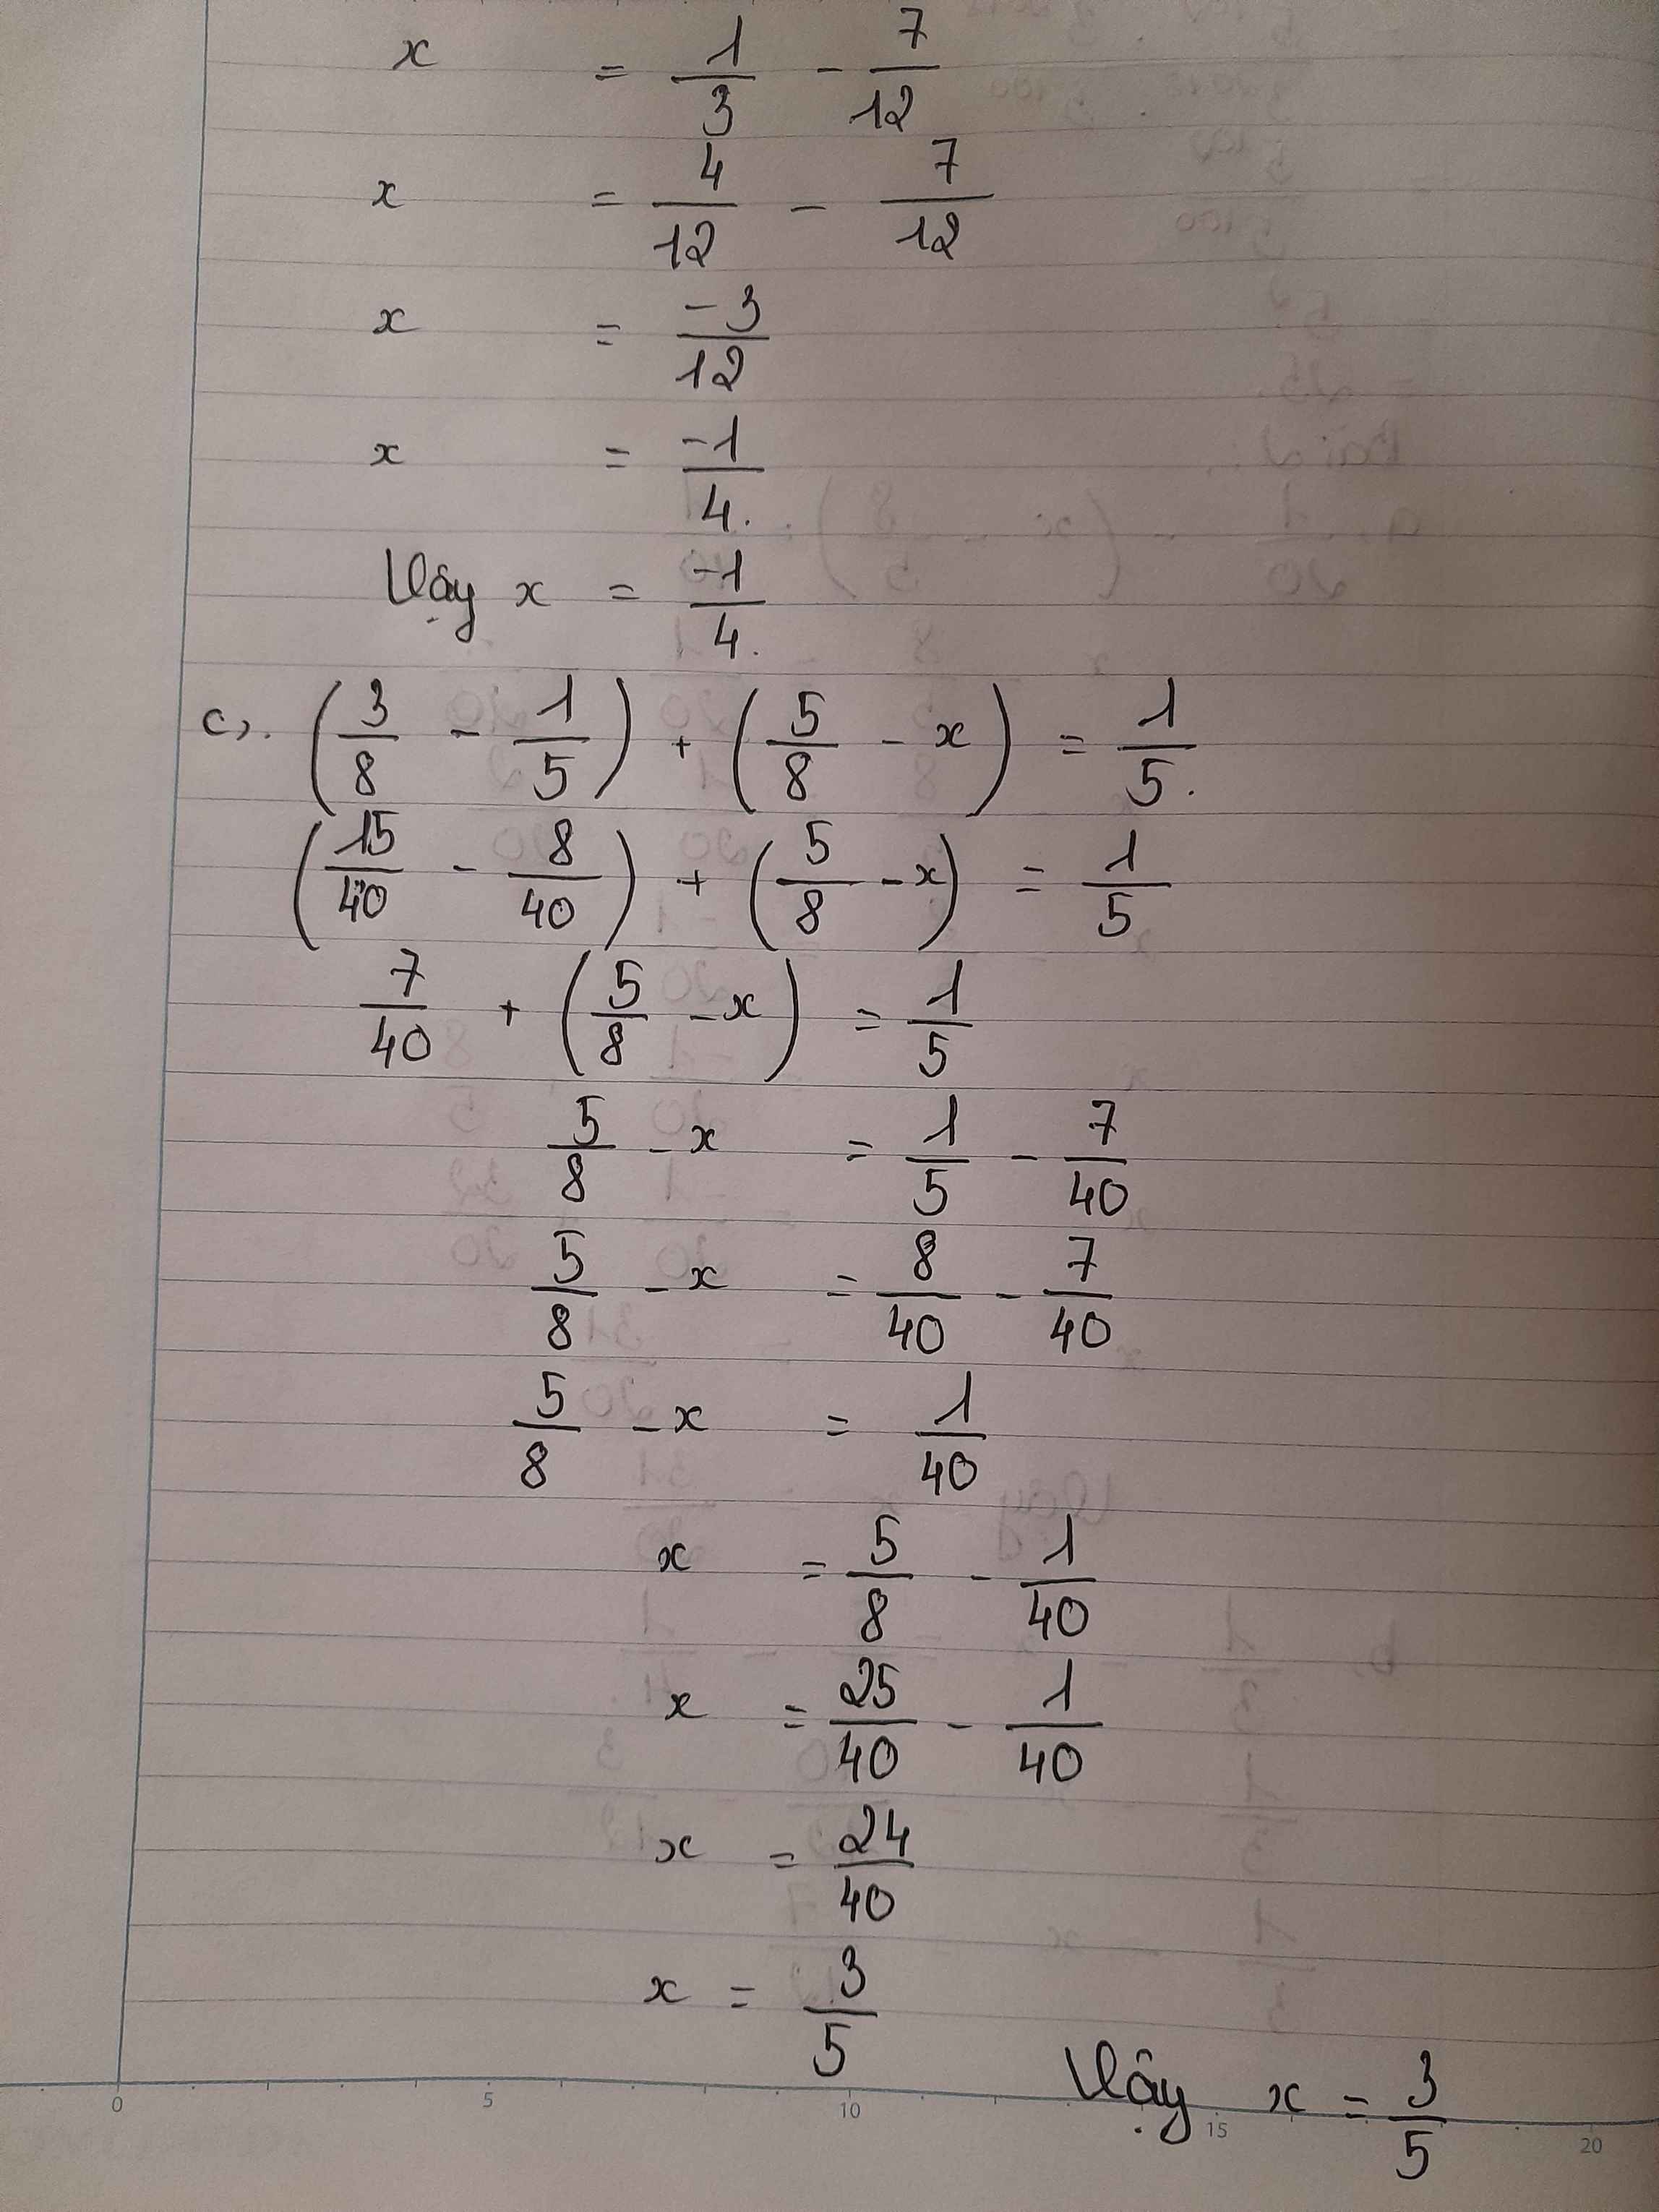 x = 1/3 - 7/12
x = 4/12 - 7/12
x = -3/12
x = -1/4.
Vậy x = -1/4.
c). (3/8 - 1/5) + (5/8 - x) = 1/5.
(15/40 - 8/40) + (5/8 - x) = 1/5
7/40 + (5/8 - x) = 1/5
5/8 - x = 1/5 - 7/40
5/8 - x = 8/40 - 7/40
5/8 - x = 1/40
x = 5/8 - 1/40
x = 25/40 - 1/40
x = 24/40
x = 3/5
Vậy x = 3/5
0 5 10 15 20